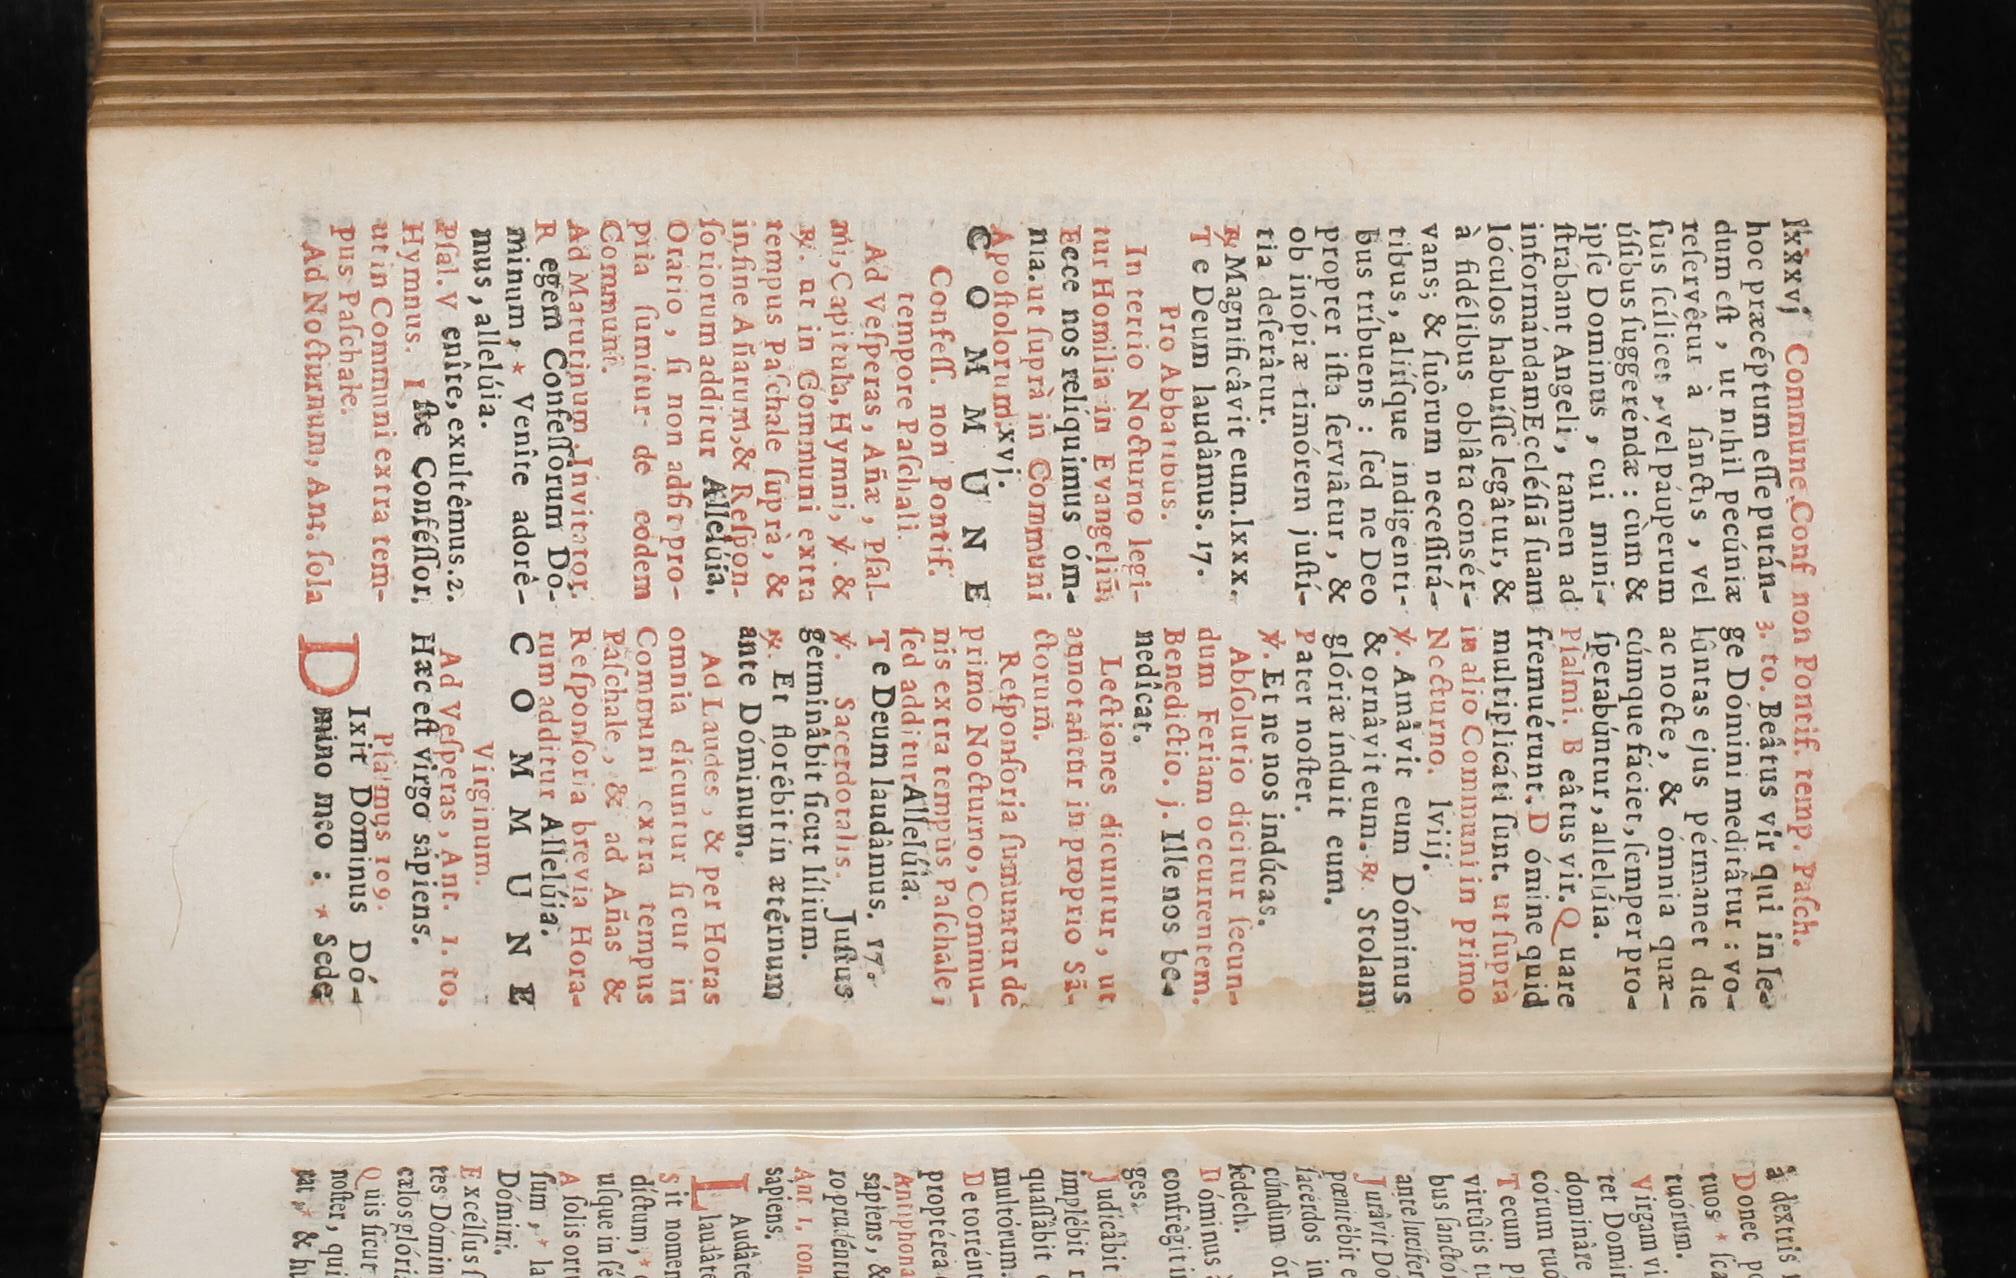 lxxxvj Commune Conf non Pontif. temp. Pasch.
hoc præcéptum esse pután-
dum est, ut nihil pecúniæ
reservêtur à sanctis, vel
suis scílicet, vel páuperum
úsibus suggeréndæ: cùm &
ipse Dominus, cui mini-
strábant Angeli, tamen ad
informándam Ecclésiã suam
lóculos habuísse legâtur, &
à fidélibus oblâta consér-
vans; & suôrum necessitá-
tibus, aliísque indigenti-
bus tríbuens: sed ne Deo
propter ista serviâtur, &
ob inópiæ timórem justí-
tia deserâtur.
℟ Magnificâvit eum. lxxx.
Te Deum laudâmus. 17.
Pro Abbatibus.
In tertio Nocturno legi-
tur Homilia in Evangeliũ;
Ecce nos relíquimus óm-
nia. ut suprà in Communi
Apostolorum xvj.
COMMUNE
Confess. non Pontif.
tempore Paschali.
Ad Vesperas, Añæ, Psal-
mi, Capitula, Hymni, ℣. &
℟. ut in Communi extra
tempus Paschale suprà, &
in fine Añarum, & Respon-
soriorum additur Allelúia.
Oratio, si non adsit pro-
pria sumitur de eodem
Communi.
Ad Matutinum. Invitator.
Regem Confessorum Do-
minum, * Venîte adorê-
mus, allelúia.
Psal. Venîte, exultêmus. 2.
Hymnus. Iste Conféssor.
ut in Communi extra tem-
pus Paschale.
Ad Nocturnum, Ant. sola
3. to. Beâtus vir qui in le-
ge Dómini meditâtur: vo-
lûntas ejus pérmanet die
ac nocte, & omnia quæ-
cúmque fáciet, semper pro-
sperabúntur, allelúia.
Psalmi. Beâtus vir. Quare
fremuérunt. Dómine quid
multiplicáti sunt. ut suprà
in alio Communi in primo
Nocturno. lviij.
℣. Amâvit eum Dóminus
& ornâvit eum. ℟. Stolam
glóriæ índuit eum.
Pater noster.
℣. Et ne nos indúcas.
Absolutio dicitur secun-
dum Feriam occurrentem.
Benedictio. j. Ille nos be-
nedîcat.
Lectiones dicuntur, ut
annotantur in proprio Sã-
ctorum.
Responsoria sumuntur de
primo Nocturno, Commu-
nis extra tempus Paschale;
sed additur Allelúia.
Te Deum laudâmus. 17.
℣. Sacerdotalis. Justus
germinâbit sicut lílium.
℟. Et florêbit in ætérnum
ante Dóminum.
Ad Laudes, & per Horas
omnia dicuntur sicut in
Communi extra tempus
Paschale, & ad Añas &
Responsoria brevia Hora-
rum additur Allelúia.
COMMUNE
Virginum.
Ad Vesperas, Ant. 1. to.
Hæc est virgo sàpiens.
Psalmus 109.
DIxit Dominus Dó-
mino meo: * Sede
à dextris
Donec
tuos *
tuórum.
Virgam
tet
dominàre
córum
Tecum
virtûtis
bus
ante
Jurâvit
pœnitêbit
sacérdos
cúndum
sedech.
Dóminus
confrègit
ges.
Judicâbit
implêbit
quassâbit
multórum.
De torrénte
proptérea
Antiphona
sápiens, &
Ant. 1. ton.
sapiens.
LAudâte
laudâte
Sit nomen
dictum, *
usque in
A solis ortu
Dómini.
Excélsus
cælos
noster, qui
Quis sicut
& hu